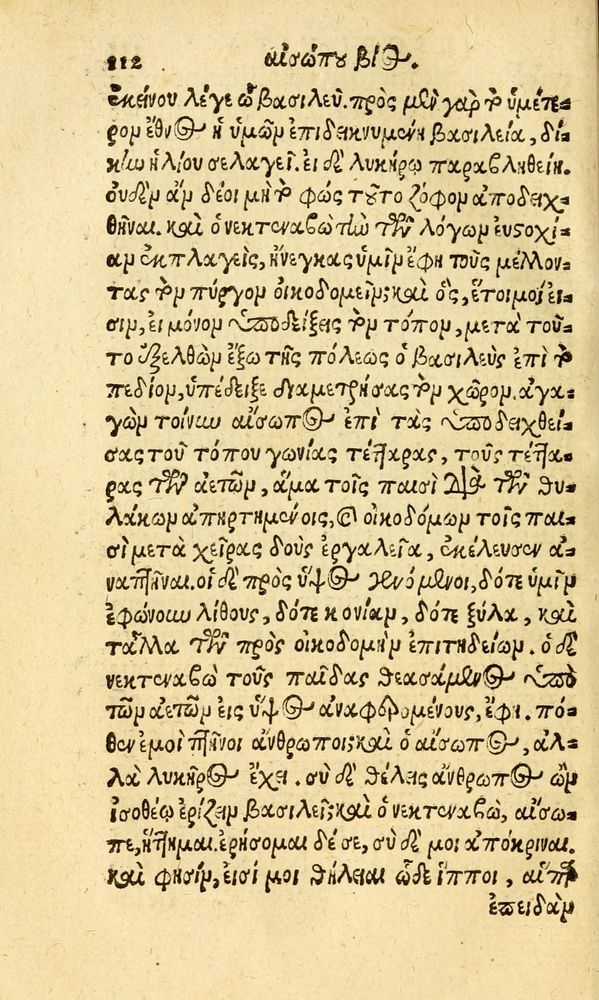 112 αἰσώπου βίος.
ἐκείνου λέγε ὦ βασιλεῦ. πρὸς μὲν γὰρ τὸ ὑμέτε-
ρον ἔθνος ἡ ὑμῶν ἐπιδεικνυμένη βασιλεία, δί-
κην ἡλίου σελαγεῖ. εἰ δὲ λυκήρῳ παραβληθείη.
οὐδὲν ἂν δέοι μὴ τὸ φῶς τοῦτο ζόφον ἀποδειχ-
θῆναι. καὶ ὁ νεκτεναβὼ τὴν τῶν λόγων εὐστοχί-
αν ἐκπλαγεὶς, ἤνεγκας ὑμῖν ἔφη τοὺς μέλλον-
τας τὸν πύργον οἰκοδομεῖν; καὶ ὃς, ἕτοιμοί εἰ-
σιν, εἰ μόνον ὑποδείξεις τὸν τόπον, μετὰ τοῦ-
το ἐξελθὼν ἔξω τῆς πόλεως ὁ βασιλεὺς ἐπὶ τὸ
πεδίον, ὑπέδειξε διαμετρήσας τὸν χῶρον. ἀγα-
γὼν τοίνυν αἴσωπος ἐπὶ τὰς ὑποδειχθεί-
σας τοῦ τόπου γωνίας τέτταρας, τοὺς τέττα-
ρας τῶν ἀετῶν, ἅμα τοῖς παισὶ διὰ τῶν θυ-
λάκων ἀπηρτημένοις, καὶ οἰκοδόμων τοῖς παι-
σὶ μετὰ χεῖρας δοὺς ἐργαλεῖα, ἐκέλευσεν ἀ-
ναπτῆναι. οἱ δὲ πρὸς ὕψος γενόμενοι, δότε ὑμῖν
ἐφώνουν λίθους, δότε κονίαν, δότε ξύλα, καὶ
τἆλλα τῶν πρὸς οἰκοδομὴν ἐπιτηδείων. ὁ δὲ
νεκτεναβὼ τοὺς παῖδας θεασάμενος ὑπὸ
τῶν ἀετῶν εἰς ὕψος ἀναφερομένους, ἔφη. πό-
θεν ἐμοὶ πτηνοὶ ἄνθρωποι; καὶ ὁ αἴσωπος, ἀλ-
λὰ λυκῆρος ἔχει. σὺ δὲ θέλεις ἄνθρωπος ὢν
ἰσοθέῳ ἐρίζειν βασιλεῖ; καὶ ὁ νεκτεναβὼ, αἴσω-
πε, ἥττημαι. ἐρήσομαι δέ σε, σὺ δέ μοι ἀπόκριναι.
καὶ φησίν, εἰσί μοι θήλειαι ὧδε ἵπποι, αἵπερ
ἐπειδὰν